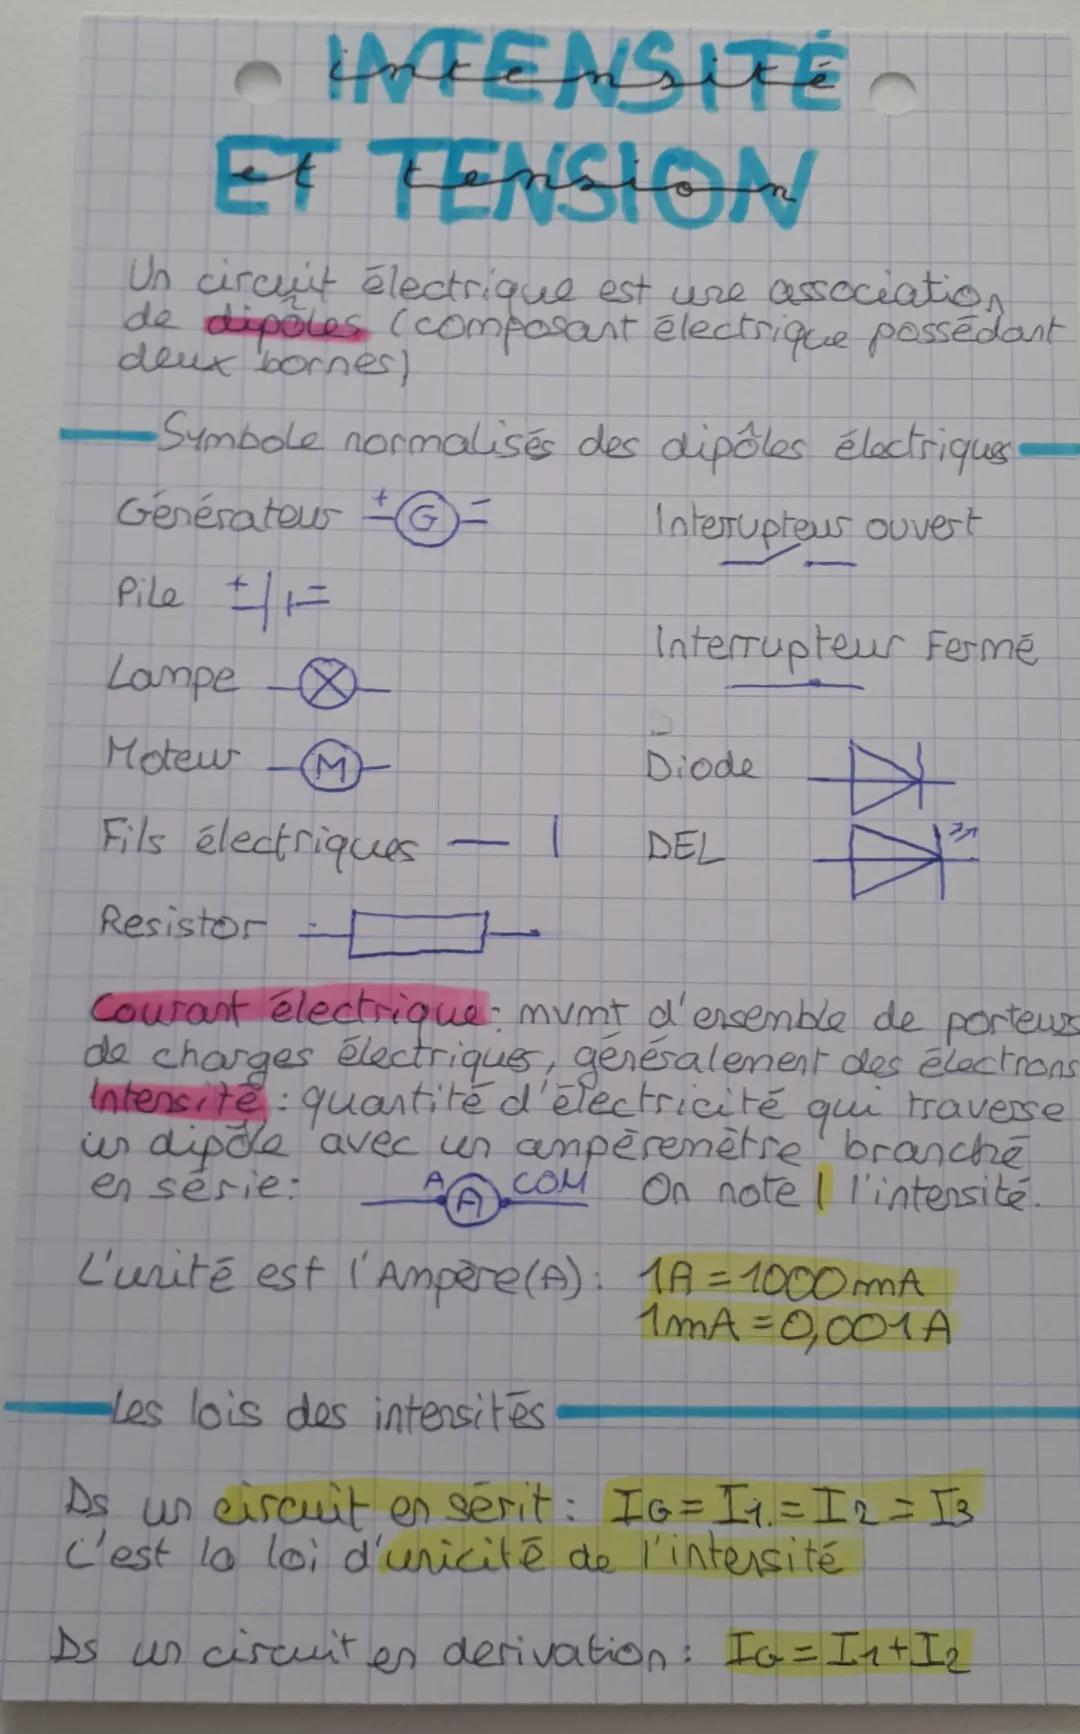 INTENSITÉ
intensité
ET TENSION
et tension
Un circuit électrique est une association
de dipôles (composant électrique possédant
deux bornes)
Symbole normalisés des dipôles électriques
Générateur + G -
Interrupteur ouvert
Pile + -
Interrupteur Fermé
Lampe
Moteur M
Diode
Fils électriques
DEL
Resistor
Courant électrique : mvmt d'ensemble de porteurs
de charges électriques, généralement des électrons
Intensité : quantité d'électricité qui traverse
un dipôle avec un ampèremètre branché
en série: A A COM On note I l'intensité.
L'unité est l'Ampère(A): 1A = 1000mA
1mA = 0,001A
Les lois des intensités
Ds un circuit en sérit : IG = I1. = I2 = I3
C'est la loi d'unicité de l'intensité
Ds un circuit en derivation : IG = I1 + I2